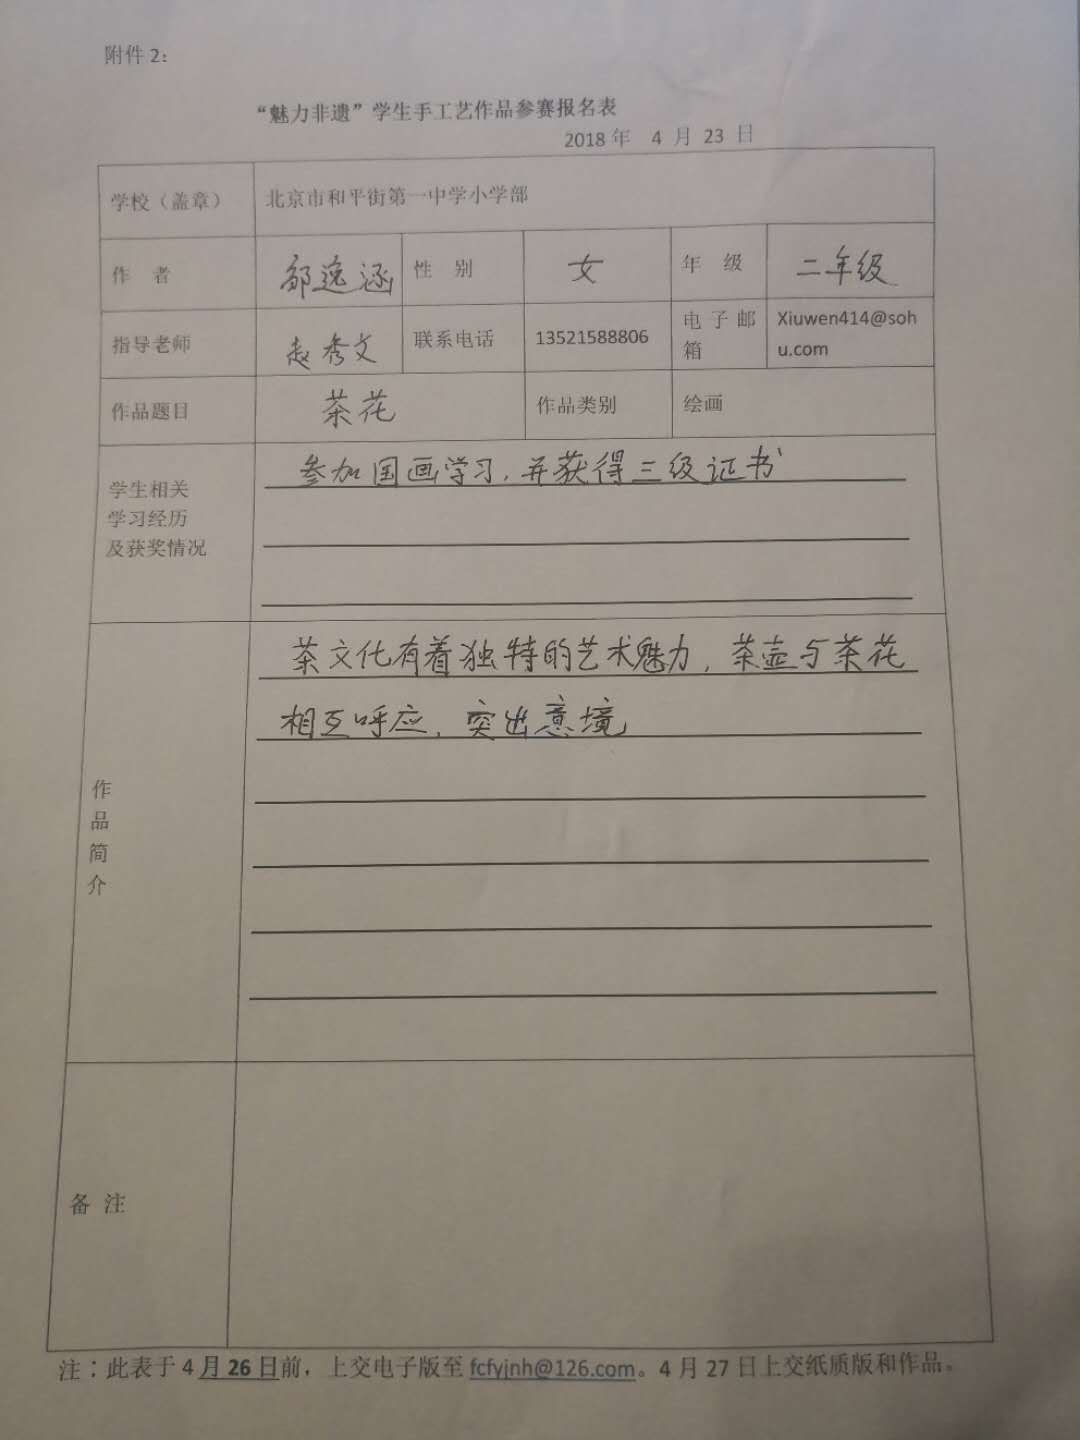 附件2：
“魅力非遗”学生手工艺作品参赛报名表
2018年 4 月 23 日
学校（盖章） 北京市和平街第一中学小学部
作 者 邹逸涵 性 别 女 年 级 二年级
指导老师 赵秀文 联系电话 13521588806 电子邮箱 Xiuwen414@sohu.com
作品题目 茶花 作品类别 绘画
学生相关
学习经历
及获奖情况
参加国画学习，并获得三级证书
作
品
简
介
茶文化有着独特的艺术魅力，茶壶与茶花
相互呼应，突出意境
备 注
注：此表于4月26日前，上交电子版至fcfyjnh@126.com。4月27日上交纸质版和作品。